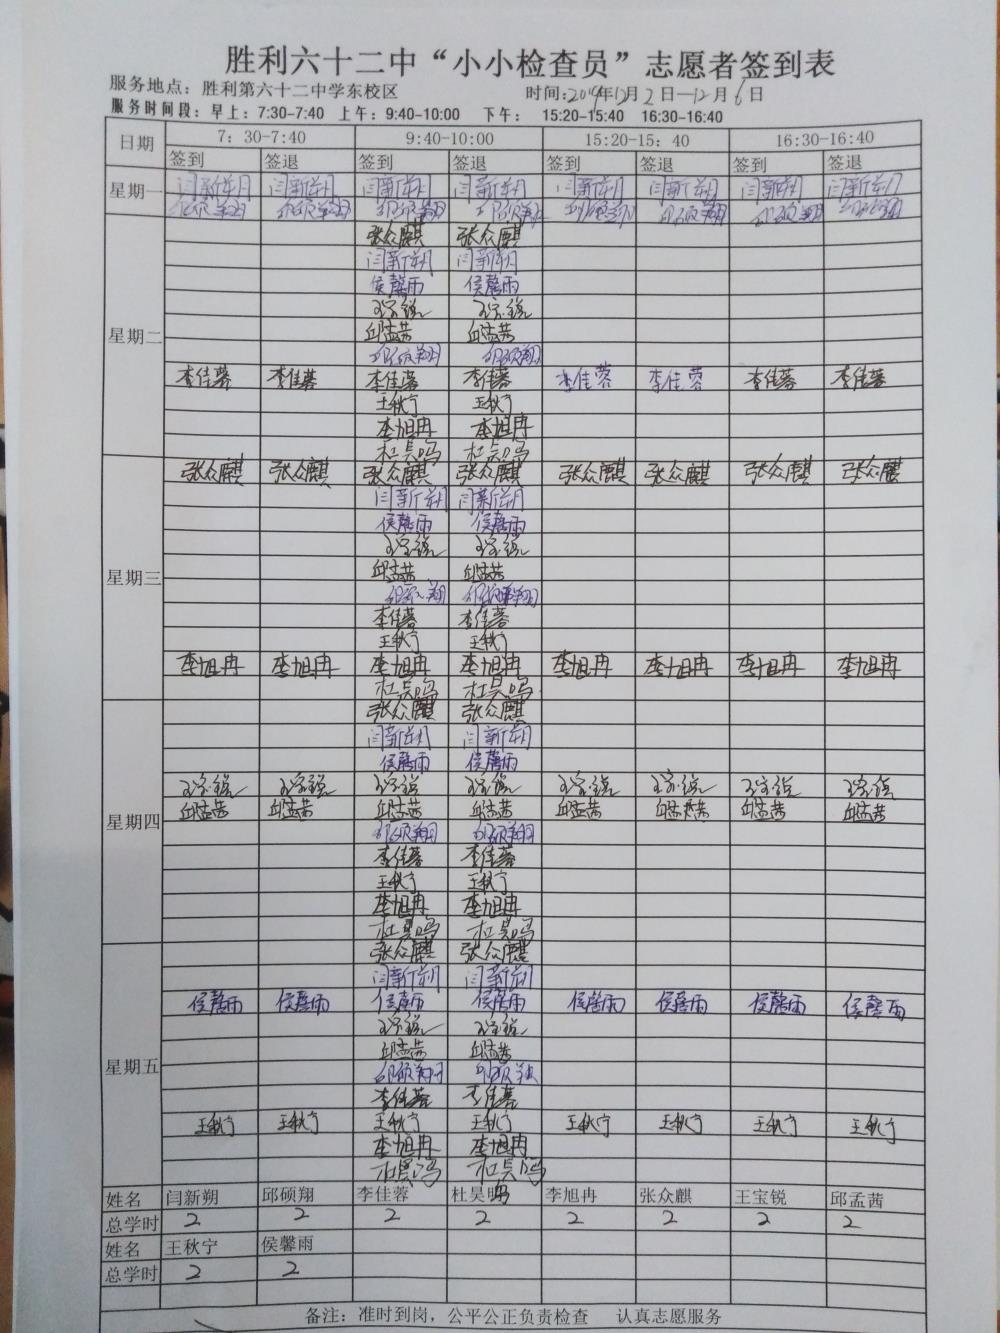 胜利六十二中“小小检查员”志愿者签到表
服务地点：胜利第六十二中学东校区 时间:2019年12月2日—12月6日
服务时间段：早上：7:30-7:40 上午：9:40-10:00 下午： 15:20-15:40 16:30-16:40
日期 7：30-7:40 9:40-10:00 15:20-15：40 16:30-16:40
签到 签退 签到 签退 签到 签退 签到 签退
星期一 闫新朔 闫新朔 闫新朔 闫新朔 闫新朔 闫新朔 闫新朔 闫新朔
邱硕翔 邱硕翔 邱硕翔 邱硕翔 邱硕翔 邱硕翔 邱硕翔 邱硕翔
张众麒 张众麒
闫新朔 闫新朔
侯馨雨 侯馨雨
王宝锐 王宝锐
星期二 邱孟茜 邱孟茜
邱硕翔 邱硕翔
李佳蓉 李佳蓉 李佳蓉 李佳蓉 李佳蓉 李佳蓉 李佳蓉 李佳蓉
王秋宁 王秋宁
李旭冉 李旭冉
杜昊鸣 杜昊鸣
张众麒 张众麒 张众麒 张众麒 张众麒 张众麒 张众麒 张众麒
闫新朔 闫新朔
侯馨雨 侯馨雨
王宝锐 王宝锐
星期三 邱孟茜 邱孟茜
邱硕翔 邱硕翔
李佳蓉 李佳蓉
王秋宁 王秋宁
李旭冉 李旭冉 李旭冉 李旭冉 李旭冉 李旭冉 李旭冉 李旭冉
杜昊鸣 杜昊鸣
张众麒 张众麒
闫新朔 闫新朔
侯馨雨 侯馨雨
王宝锐 王宝锐 王宝锐 王宝锐 王宝锐 王宝锐 王宝锐 王宝锐
星期四 邱孟茜 邱孟茜 邱孟茜 邱孟茜 邱孟茜 邱孟茜 邱孟茜 邱孟茜
邱硕翔 邱硕翔
李佳蓉 李佳蓉
王秋宁 王秋宁
李旭冉 李旭冉
杜昊鸣 杜昊鸣
张众麒 张众麒
闫新朔 闫新朔
侯馨雨 侯馨雨 侯馨雨 侯馨雨 侯馨雨 侯馨雨 侯馨雨 侯馨雨
王宝锐 王宝锐
邱孟茜 邱孟茜
星期五 邱硕翔 邱硕翔
李佳蓉 李佳蓉
王秋宁 王秋宁 王秋宁 王秋宁 王秋宁 王秋宁 王秋宁 王秋宁
李旭冉 李旭冉
杜昊鸣 杜昊鸣
姓名 闫新朔 邱硕翔 李佳蓉 杜昊鸣 李旭冉 张众麒 王宝锐 邱孟茜
总学时 2 2 2 2 2 2 2 2
姓名 王秋宁 侯馨雨
总学时 2 2
备注：准时到岗，公平公正负责检查 认真志愿服务